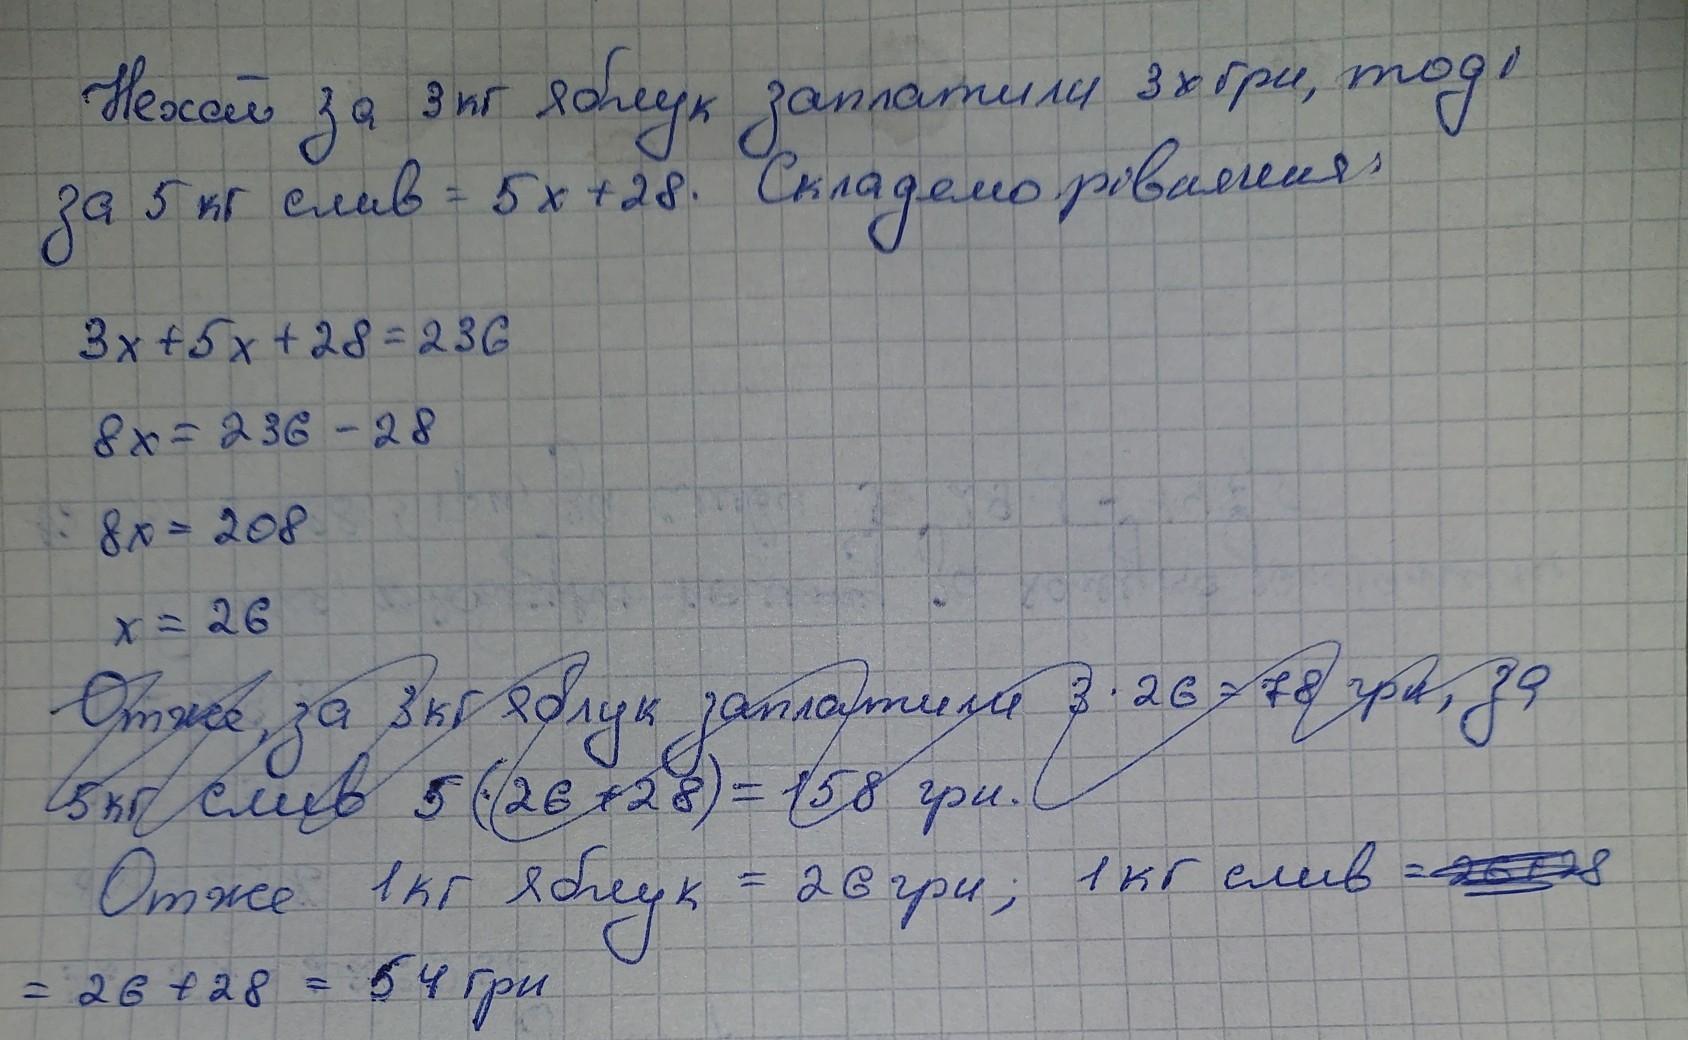 Нехай за 3кг яблук заплатили 3х грн, тоді
за 5кг слив = 5х+28. Складемо рівняння:
3х+5х+28=236
8х=236-28
8х=208
х=26
Отже, за 3кг яблук заплатили 3·26=78 грн, за
5кг слив 5(26+28)=158 грн.
Отже 1кг яблук = 26грн; 1кг слив =
= 26+28 = 54грн